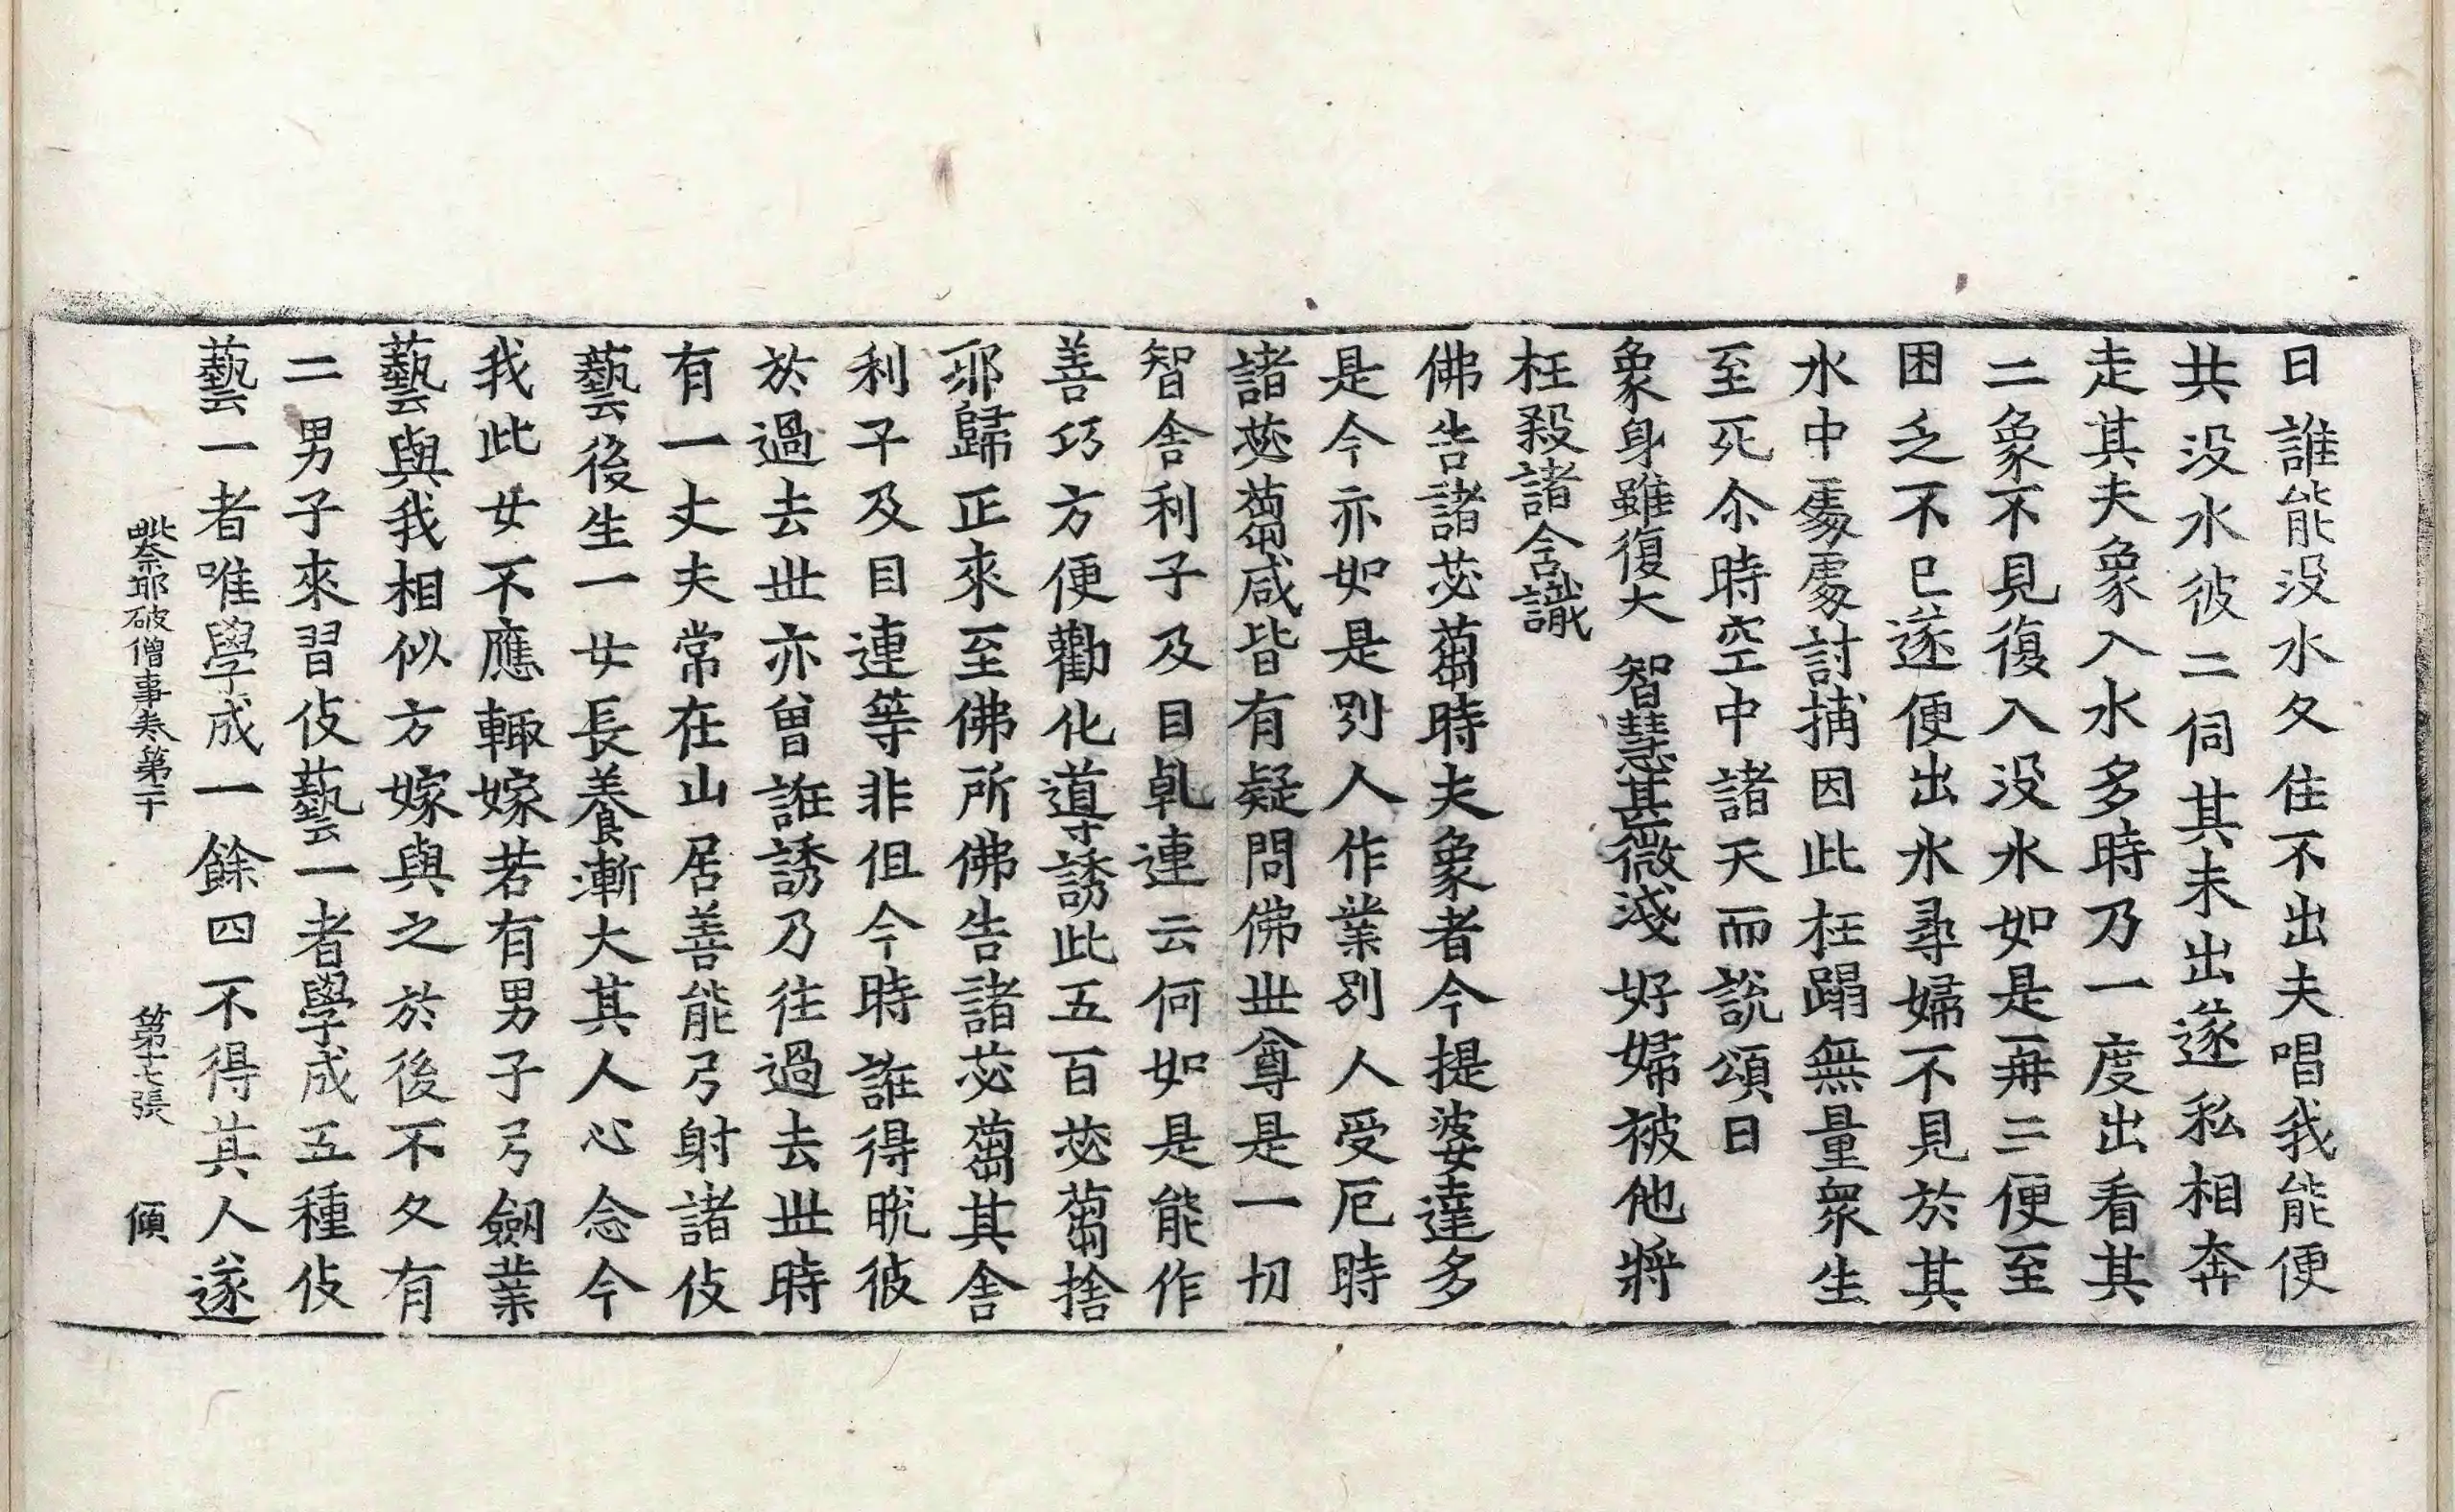 日誰能没水久住不出夫唱我能便
共没水彼二伺其未出遂私相奔
走其夫象入水多時乃一度出看其
二象不見復入没水如是再三便至
困乏不已遂便出水尋婦不見於其
水中處處討捕因此枉蹋無量衆生
至死尒時空中諸天而説頌曰
象身雖復大　智慧甚微淺　好婦被他將
枉殺諸含識
佛告諸苾蒭時夫象者今提婆達多
是今亦如是別人作業別人受厄時
諸苾蒭咸皆有疑問佛世尊是一切
智舍利子及目乹連云何如是能作
善巧方便勸化導誘此五百苾蒭捨
邪歸正來至佛所佛告諸苾蒭其舍
利子及目連等非但今時誑得脱彼
於過去世亦曾誑誘乃往過去世時
有一丈夫常在山居善能弓射諸伎
藝後生一女長養漸大其人心念今
我此女不應輙嫁若有男子弓劒業
藝與我相似方嫁與之於後不久有
二男子來習伎藝一者學成五種伎
藝一者唯學成一餘四不得其人遂
毗奈耶破僧事卷第二十　第十七張　傾